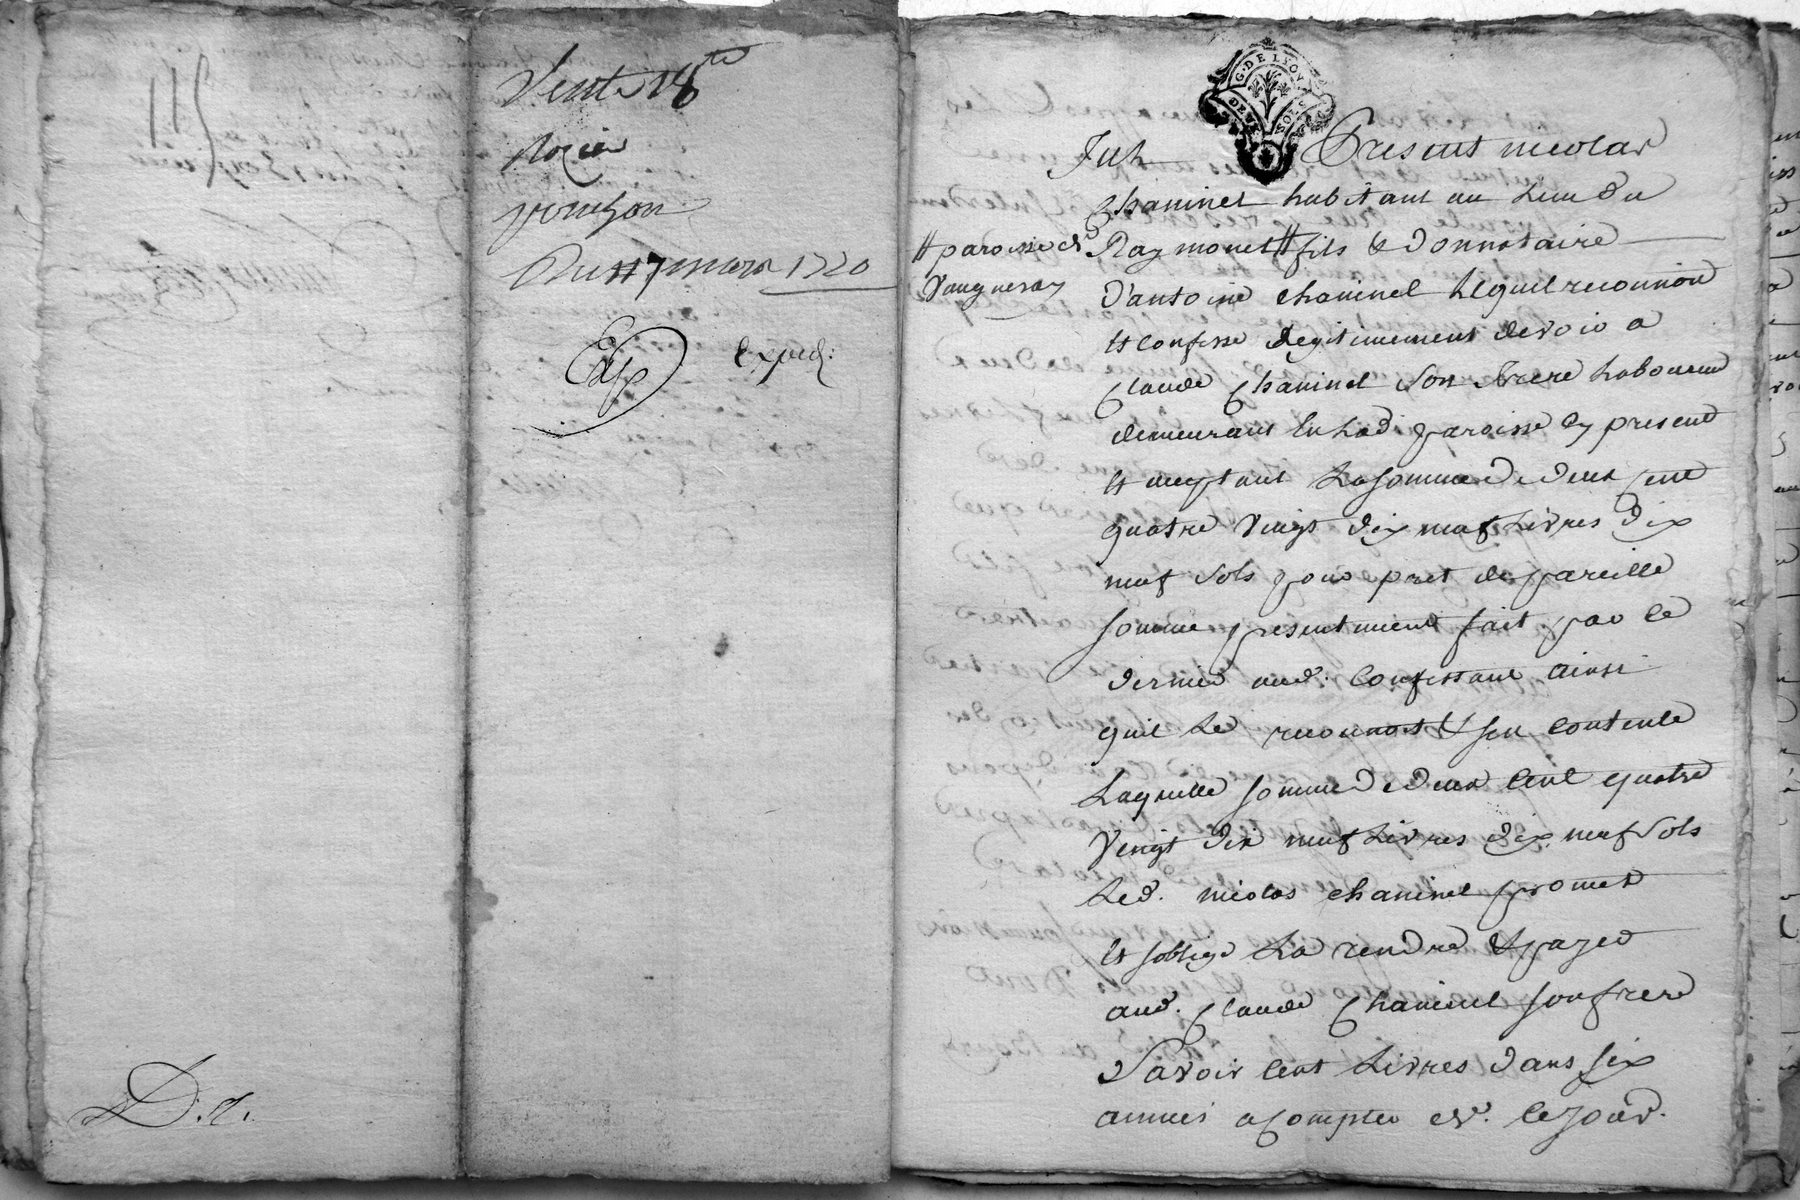 115
Vente 18
Rozier
Du 7 mars 1720
Exp
Exped:
D. r.
G. DE LYON
DEUX SOLS
Fut Present nicolas
Chaninel habitant au lieu du
# paroisse de
Vaugneray
Raymonet # fils & donnataire
d'antoine Chaninel lequel reconnoit
et confesse legitimement devoir a
Claude Chaninel son frere laboureur
demeurant en lad paroisse cy present
et acceptant la somme de deux cent
quatre vingt dix neuf livres dix
neuf sols pour pret de pareille
somme presentement fait par ce
dernier aud. Confessant ainsi
quil le reconnoit & sen contente
Laquelle somme de deux cent quatre
vingt dix neuf livres dix neuf sols
Led. nicolas Chaninel promet
et soblige la rendre & payer
aud. Claude Chaninel son frere
Savoir cent livres dans six
années a Compter de ce jour.